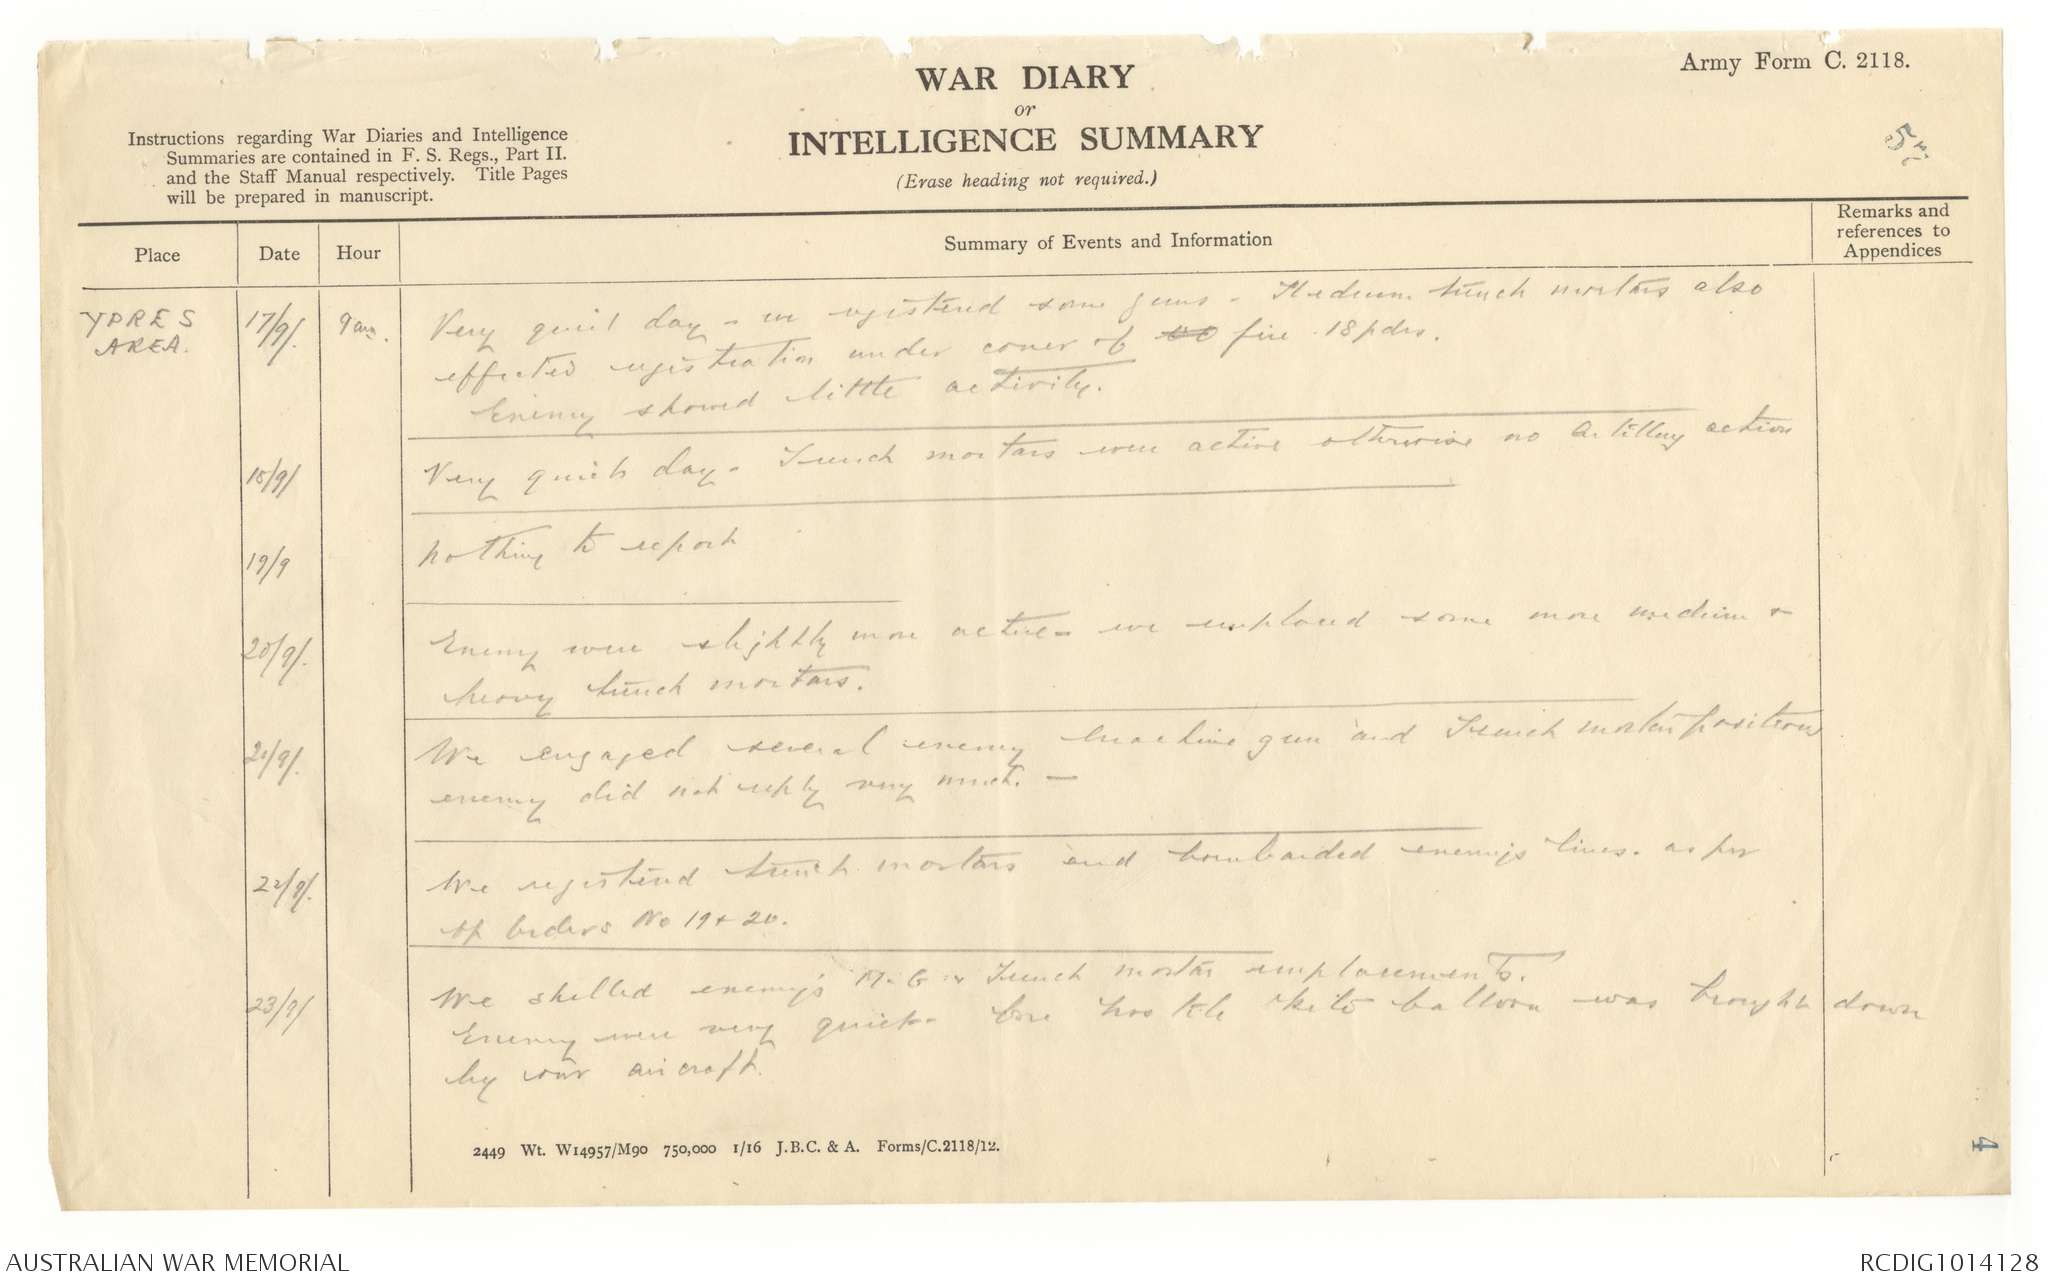 Army Form C. 2118.
WAR DIARY
or
INTELLIGENCE SUMMARY
(Erase heading not required.)
Instructions regarding War Diaries and Intelligence
Summaries are contained in F. S. Regs., Part II.
and the Staff Manual respectively. Title Pages
will be prepared in manuscript.
Place
Date
Hour
Summary of Events and Information
Remarks and
references to
Appendices
YPRES
AREA.
17/9/.
9 am.
Very quiet day - we registered some guns - Medium trench mortars also
effected registration under cover of fire 18 pdrs.
Enemy showed little activity.
18/9/
Very quiet day - Trench mortars were active otherwise no Artillery action
19/9
Nothing to report
20/9/.
Enemy were slightly more active - we emplaced some more medium &
heavy trench mortars.
21/9/.
We engaged several enemy machine gun and Trench mortar positions
enemy did not reply very much. -
22/9/.
We registered trench mortars and bombarded enemy's lines. as per
Op Orders No 19 & 20.
23/9/
We shelled enemy's M.G. & Trench mortar emplacements.
Enemy were very quiet - One hostile kite balloon was brought down
by our aircraft.
2449 Wt. W14957/M90 750,000 1/16 J.B.C. & A. Forms/C.2118/12.
4
AUSTRALIAN WAR MEMORIAL
RCDIG1014128